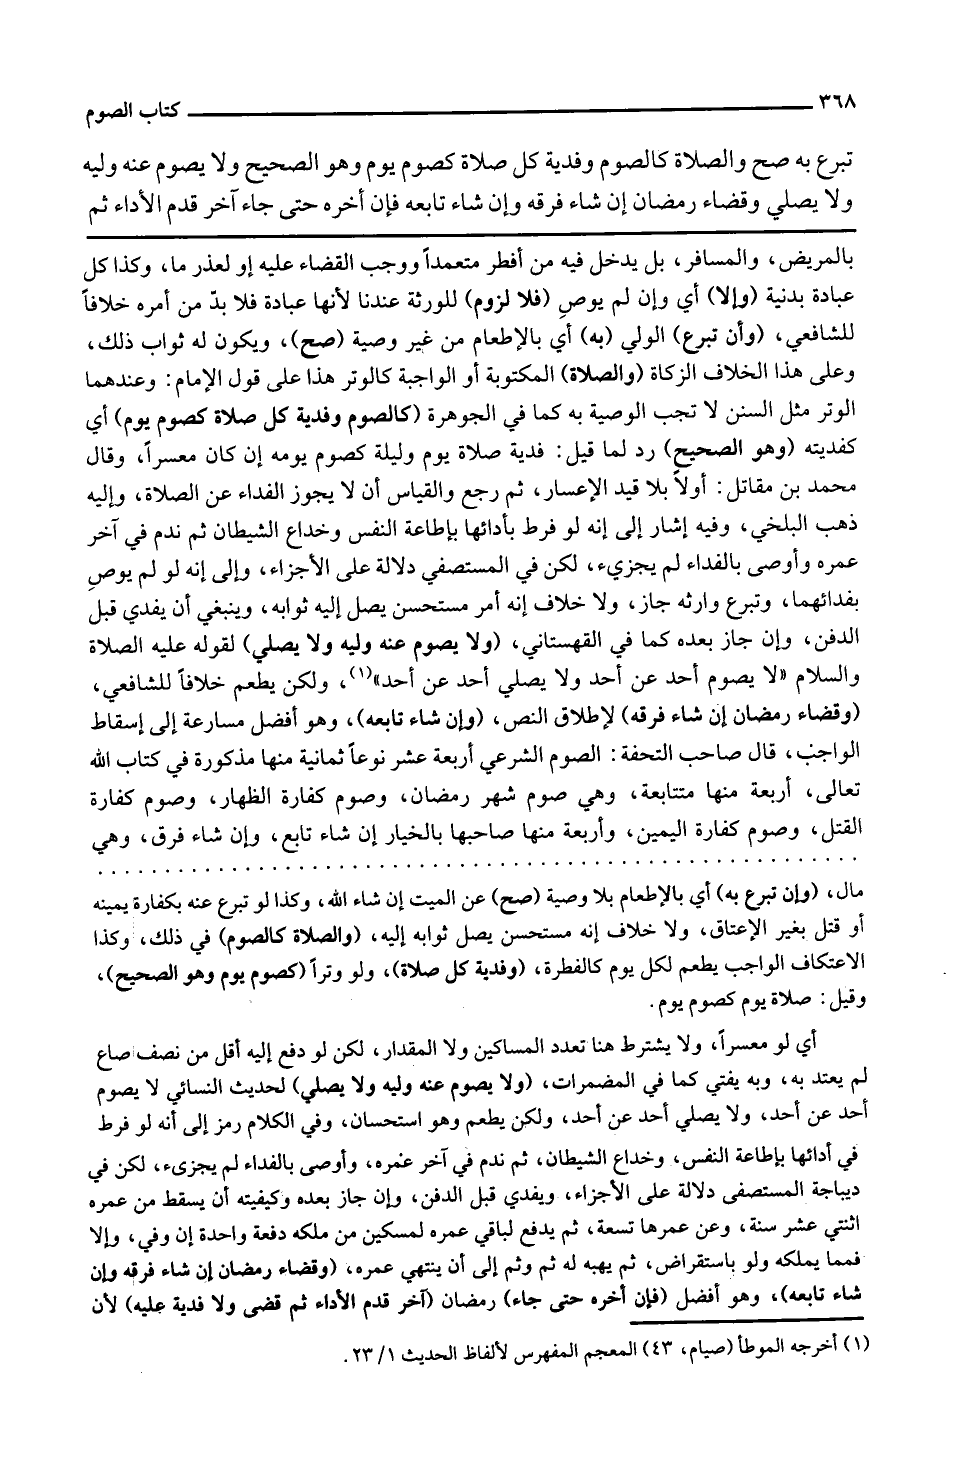 ٣٦٨ كتاب الصوم
تبرع به صح والصلاة كالصوم وفدية كل صلاة كصوم يوم وهو الصحيح ولا يصوم عنه وليه
ولا يصلي وقضاء رمضان إن شاء فرقه وإن شاء تابعه فإن أخره حتى جاء آخر قدم الأداء ثم
بالمريض، والمسافر، بل يدخل فيه من أفطر متعمداً ووجب القضاء عليه إو لعذر ما، وكذا كل
عبادة بدنية (وإلا) أي وإن لم يوصِ (فلا لزوم) للورثة عندنا لأنها عبادة فلا بدّ من أمره خلافاً
للشافعي، (وأن تبرع) الولي (به) أي بالإطعام من غير وصية (صح)، ويكون له ثواب ذلك،
وعلى هذا الخلاف الزكاة (والصلاة) المكتوبة أو الواجبة كالوتر هذا على قول الإمام: وعندهما
الوتر مثل السنن لا تجب الوصية به كما في الجوهرة (كالصوم وفدية كل صلاة كصوم يوم) أي
كفديته (وهو الصحيح) رد لما قيل: فدية صلاة يوم وليلة كصوم يومه إن كان معسراً، وقال
محمد بن مقاتل: أولاً بلا قيد الإعسار، ثم رجع والقياس أن لا يجوز الفداء عن الصلاة، وإليه
ذهب البلخي، وفيه إشار إلى إنه لو فرط بأدائها بإطاعة النفس وخداع الشيطان ثم ندم في آخر
عمره وأوصى بالفداء لم يجزيء، لكن في المستصفي دلالة على الأجزاء، وإلى إنه لو لم يوصِ
بفدائهما، وتبرع وارثه جاز، ولا خلاف إنه أمر مستحسن يصل إليه ثوابه، وينبغي أن يفدي قبل
الدفن، وإن جاز بعده كما في القهستاني، (ولا يصوم عنه وليه ولا يصلي) لقوله عليه الصلاة
والسلام «لا يصوم أحد عن أحد ولا يصلي أحد عن أحد»(١)، ولكن يطعم خلافاً للشافعي،
(وقضاء رمضان إن شاء فرقه) لإطلاق النص، (وإن شاء تابعه)، وهو أفضل مسارعة إلى إسقاط
الواجب، قال صاحب التحفة: الصوم الشرعي أربعة عشر نوعاً ثمانية منها مذكورة في كتاب الله
تعالى، أربعة منها متتابعة، وهي صوم شهر رمضان، وصوم كفارة الظهار، وصوم كفارة
القتل، وصوم كفارة اليمين، وأربعة منها صاحبها بالخيار إن شاء تابع، وإن شاء فرق، وهي
مال، (وإن تبرع به) أي بالإطعام بلا وصية (صح) عن الميت إن شاء الله، وكذا لو تبرع عنه بكفارة يمينه
أو قتل بغير الإعتاق، ولا خلاف إنه مستحسن يصل ثوابه إليه، (والصلاة كالصوم) في ذلك، وكذا
الاعتكاف الواجب يطعم لكل يوم كالفطرة، (وفدية كل صلاة)، ولو وتراً (كصوم يوم وهو الصحيح)،
وقيل: صلاة يوم كصوم يوم.
أي لو معسراً، ولا يشترط هنا تعدد المساكين ولا المقدار، لكن لو دفع إليه أقل من نصف صاع
لم يعتد به، وبه يفتي كما في المضمرات، (ولا يصوم عنه وليه ولا يصلي) لحديث النسائي لا يصوم
أحد عن أحد، ولا يصلي أحد عن أحد، ولكن يطعم وهو استحسان، وفي الكلام رمز إلى أنه لو فرط
في أدائها بإطاعة النفس، وخداع الشيطان، ثم ندم في آخر عمره، وأوصى بالفداء لم يجزىء، لكن في
ديباجة المستصفى دلالة على الأجزاء، ويفدي قبل الدفن، وإن جاز بعده وكيفيته أن يسقط من عمره
اثنتي عشر سنة، وعن عمرها تسعة، ثم يدفع لباقي عمره لمسكين من ملكه دفعة واحدة إن وفي، وإلا
فمما يملكه ولو باستقراض، ثم يهبه له ثم وثم إلى أن ينتهي عمره، (وقضاء رمضان إن شاء فرقه وإن
شاء تابعه)، وهو أفضل (فإن أخره حتى جاء) رمضان (آخر قدم الأداء ثم قضى ولا فدية عليه) لأن
(١) أخرجه الموطأ (صيام، ٤٣) المعجم المفهرس لألفاظ الحديث ٢٣/١.